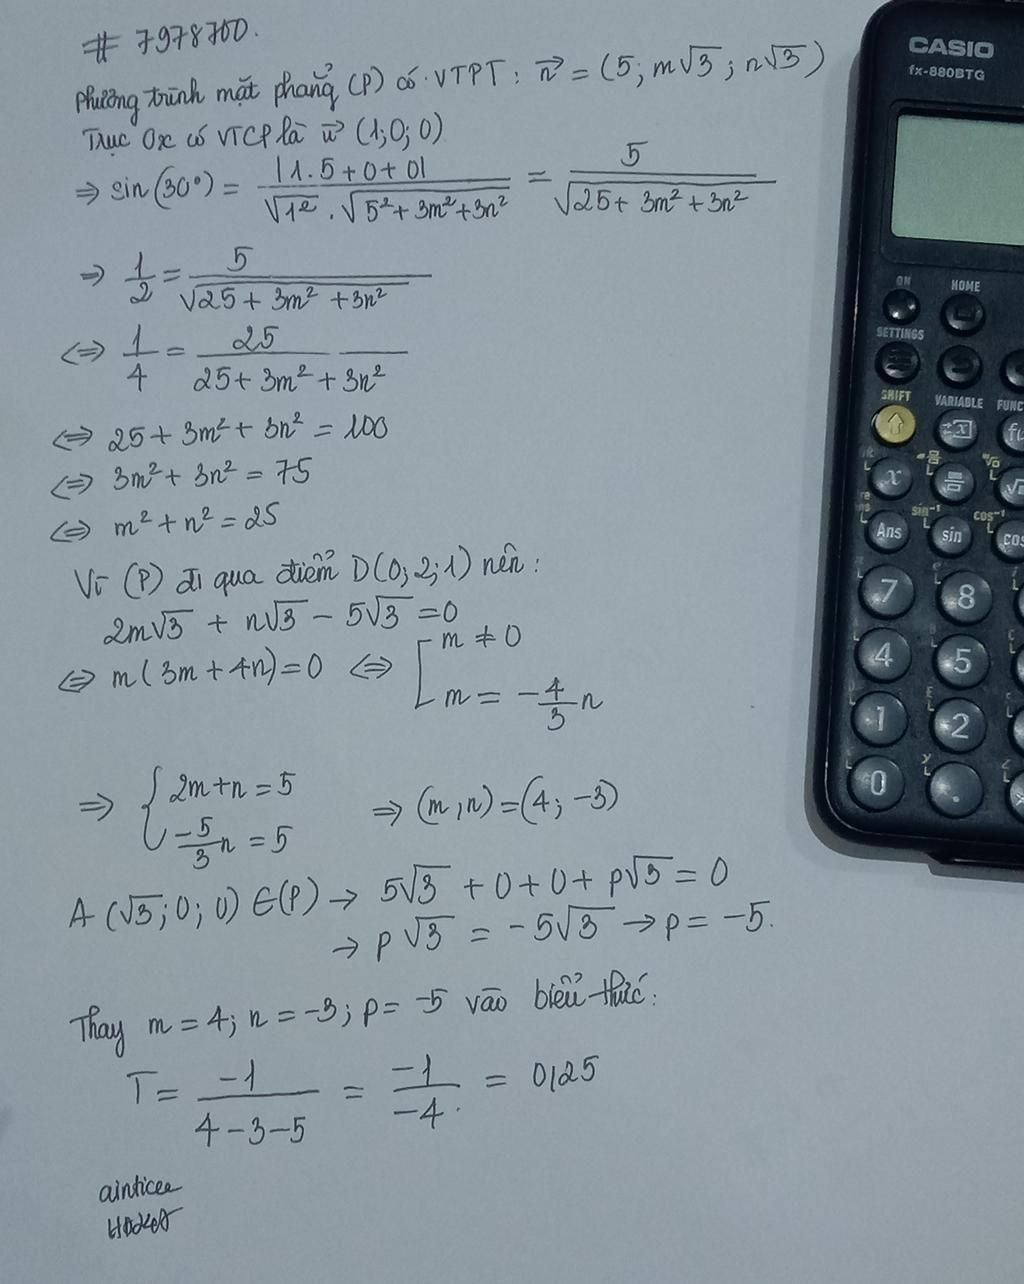 # 7978700.
Phương trình mặt phẳng (P) có VTPT: n⃗ = (5; m√3; n√3)
Trục Ox có VTCP là u⃗ (1; 0; 0)
⇒ sin(30°) = |1.5 + 0 + 0| / (√1² . √5² + 3m² + 3n²) = 5 / √25 + 3m² + 3n²
⇒ 1/2 = 5 / √25 + 3m² + 3n²
⇔ 1/4 = 25 / 25 + 3m² + 3n²
⇔ 25 + 3m² + 3n² = 100
⇔ 3m² + 3n² = 75
⇔ m² + n² = 25
Vì (P) đi qua điểm D(0; 2; 1) nên:
2m√3 + n√3 - 5√3 = 0
⇔ m(3m + 4n) = 0 ⇔ [ m ≠ 0
m = -4/3 n
⇒ { 2m + n = 5
-5/3 n = 5 ⇒ (m, n) = (4; -3)
A (√3; 0; 0) ∈ (P) → 5√3 + 0 + 0 + p√3 = 0
→ p√3 = -5√3 → p = -5.
Thay m = 4; n = -3; p = -5 vào biểu thức:
T = -1 / 4 - 3 - 5 = -1 / -4 = 0,25
ainticee
CASIO
fx-880BTG
ON HOME
SETTINGS
SHIFT VARIABLE FUNC
x
sin⁻¹ cos⁻¹
Ans sin cos
7 8
4 5
1 2
0 .